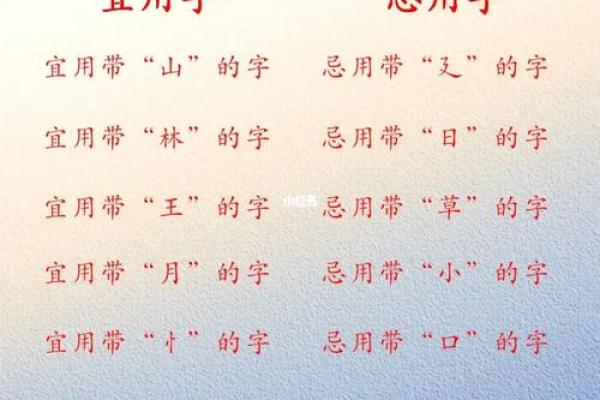 宜用字 忌用字
宜用带“山”的字 忌用带“廴”的字
宜用带“林”的字 忌用带“日”的字
宜用带“王”的字 忌用带“草”的字
小红书
宜用带“月”的字 忌用带“小”的字
宜用带“忄”的字 忌用带“口”的字